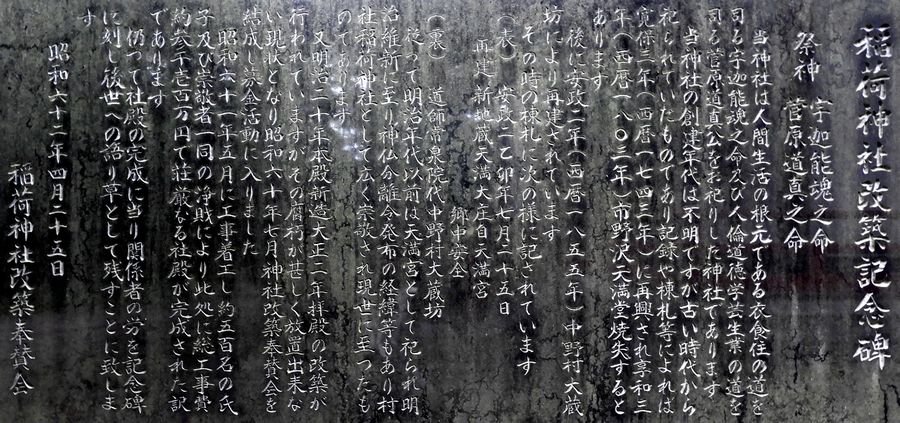 稲荷神社改築記念碑
祭神　宇迦能魂之命
菅原道真之命
当神社は人間生活の根元である衣食住の道を
司る宇迦能魂之命及び人倫道徳学芸生業の道を
司る菅原道真公を未祀りした神社であります
当神社の創建年代は不明ですが古い時代から
祀られていたものであり記録や棟札等によれば
寛保三年（西暦一七四三年）に再興され享和三
年（西暦一八〇三年）市野沢天満堂焼失すると
あります
後に安政二年（西暦一八五五年）中野村大蔵
坊により再建されています
その時の棟札に次の様に記されています
（表）　安政二乙卯年七月二十五日
郷中安全
再建　新熱蔵天満大庄自天満宮
（裏）　道師常泉院代中野村大蔵坊
従って明治年代以前は天満宮として祀られ明
治維新に至り神仏分離令発布の経緯等もあり村
社稲荷神社として広く崇敬され現世に至ったも
のであります
又明治二十年本殿新造大正二年拝殿の改築が
行われていますがその腐朽が甚しく放置出来な
い現状となり昭和六十年七月神社改築奉賛会を
結成し募金活動に入りました
昭和六十一年五月に工事着工し約五百名の氏
子及び崇敬者一同の浄財により此処に総工事費
約参千壱百万円で荘厳なる社殿が完成された訳
であります
仍って社殿の完成に当り関係者の労を記念碑
に刻し後世への語り草として残すことに致しま
す
昭和六十二年四月二十五日
稲荷神社改築奉賛会